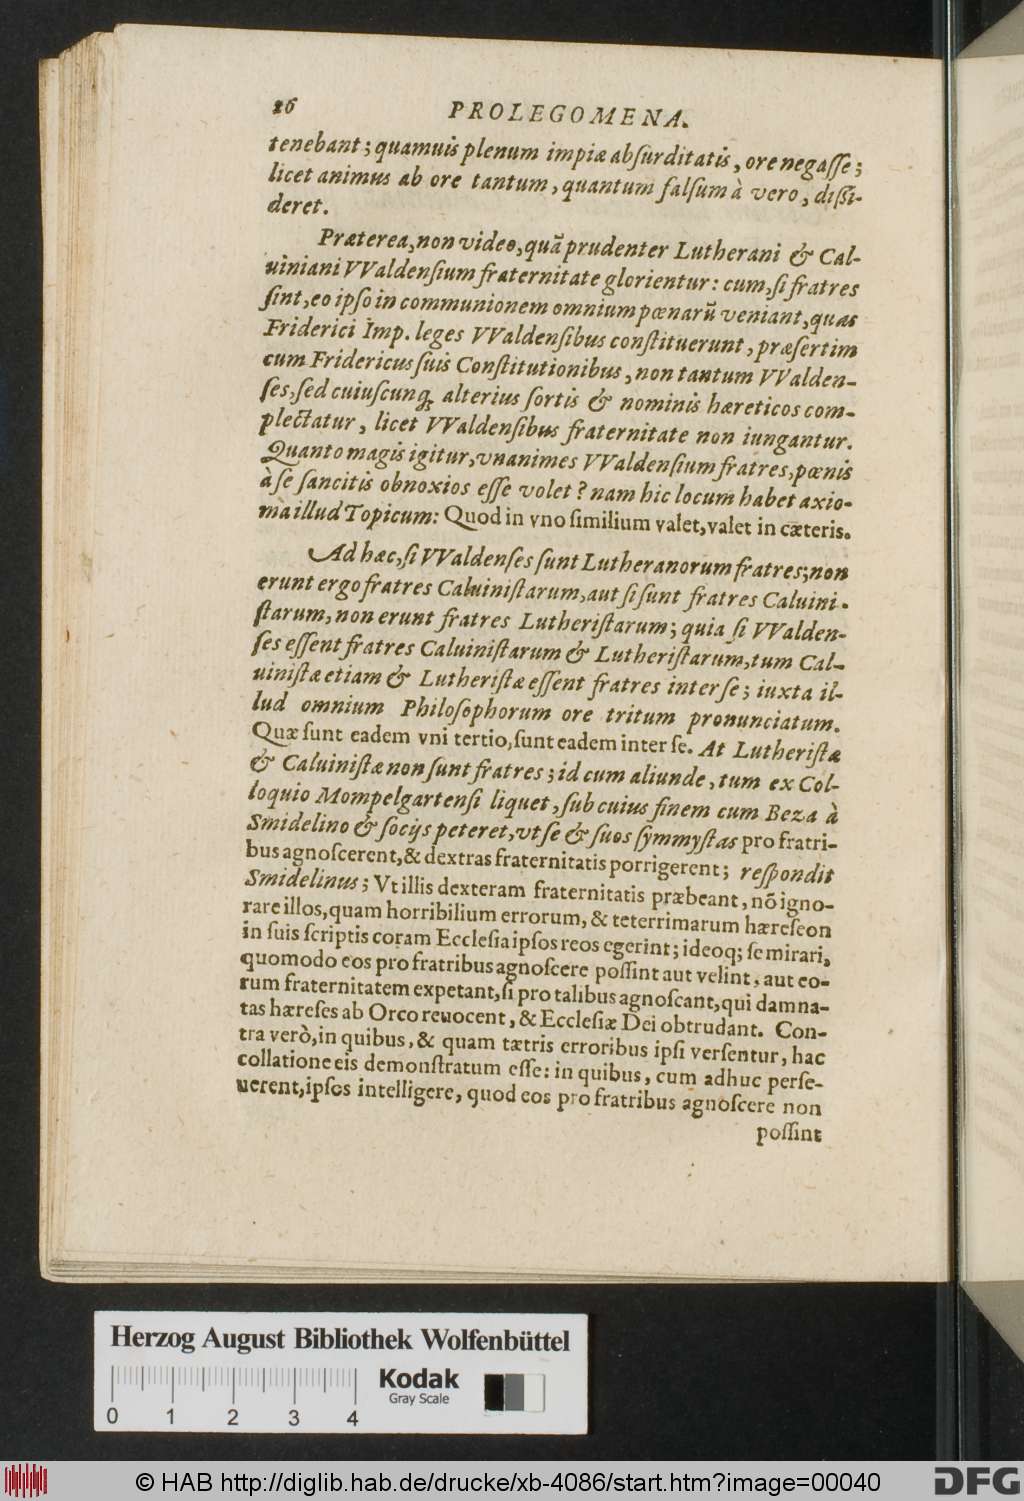 26 PROLEGOMENA.
tenebant; quamuis plenum impiæ abſurditatis, ore negaſſe;
licet animus ab ore tantum, quantum falſum à vero, diſſi-
deret.
Præterea, non video, quã prudenter Lutherani & Cal-
uiniani VValdenſium fraternitate glorientur: cum, ſi fratres
ſint, eo ipſo in communionem omnium pœnarũ veniant, quas
Friderici Imp. leges VValdenſibus conſtituerunt, præſertim
cum Fridericus ſuis Conſtitutionibus, non tantum VValden-
ſes, ſed cuiuſcunq; alterius ſortis & nominis hæreticos com-
plectatur, licet VValdenſibus fraternitate non iungantur.
Quanto magis igitur, vnanimes VValdenſium fratres, pœnis
à ſe ſancitis obnoxios eſſe volet? nam hic locum habet axio-
ma illud Topicum: Quod in vno ſimilium valet, valet in cæteris.
Ad hæc, ſi VValdenſes ſunt Lutheranorum fratres; non
erunt ergo fratres Caluiniſtarum, aut ſi ſunt fratres Caluini-
ſtarum, non erunt fratres Lutheriſtarum; quia ſi VValden-
ſes eſſent fratres Caluiniſtarum & Lutheriſtarum, tum Cal-
uiniſtæ etiam & Lutheriſtæ eſſent fratres inter ſe; iuxta il-
lud omnium Philoſophorum ore tritum pronunciatum.
Quæ ſunt eadem vni tertio, ſunt eadem inter ſe. At Lutheriſtæ
& Caluiniſtæ non ſunt fratres; id cum aliunde, tum ex Col-
loquio Mompelgartenſi liquet, ſub cuius finem cum Beza à
Smidelino & ſocijs peteret, vt ſe & ſuos ſymmyſtas pro fratri-
bus agnoſcerent, & dextras fraternitatis porrigerent; reſpondit
Smidelinus; Vt illis dexteram fraternitatis præbeant, nõ igno-
rare illos, quam horribilium errorum, & teterrimarum hæreſeon
in ſuis ſcriptis coram Eccleſia ipſos reos egerint; ideoq; ſe mirari,
quomodo eos pro fratribus agnoſcere poſſint aut velint, aut eo-
rum fraternitatem expetant, ſi pro talibus agnoſcant, qui damna-
tas hæreſes ab Orco reuocent, & Eccleſiæ Dei obtrudant. Con-
tra verò, in quibus, & quam tætris erroribus ipſi verſentur, hac
collatione eis demonſtratum eſſe: in quibus, cum adhuc perſe-
uerent, ipſos intelligere, quod eos pro fratribus agnoſcere non
poſſint
Herzog August Bibliothek Wolfenbüttel
Kodak
Gray Scale
0 1 2 3 4
© HAB http://diglib.hab.de/drucke/xb-4086/start.htm?image=00040
DFG